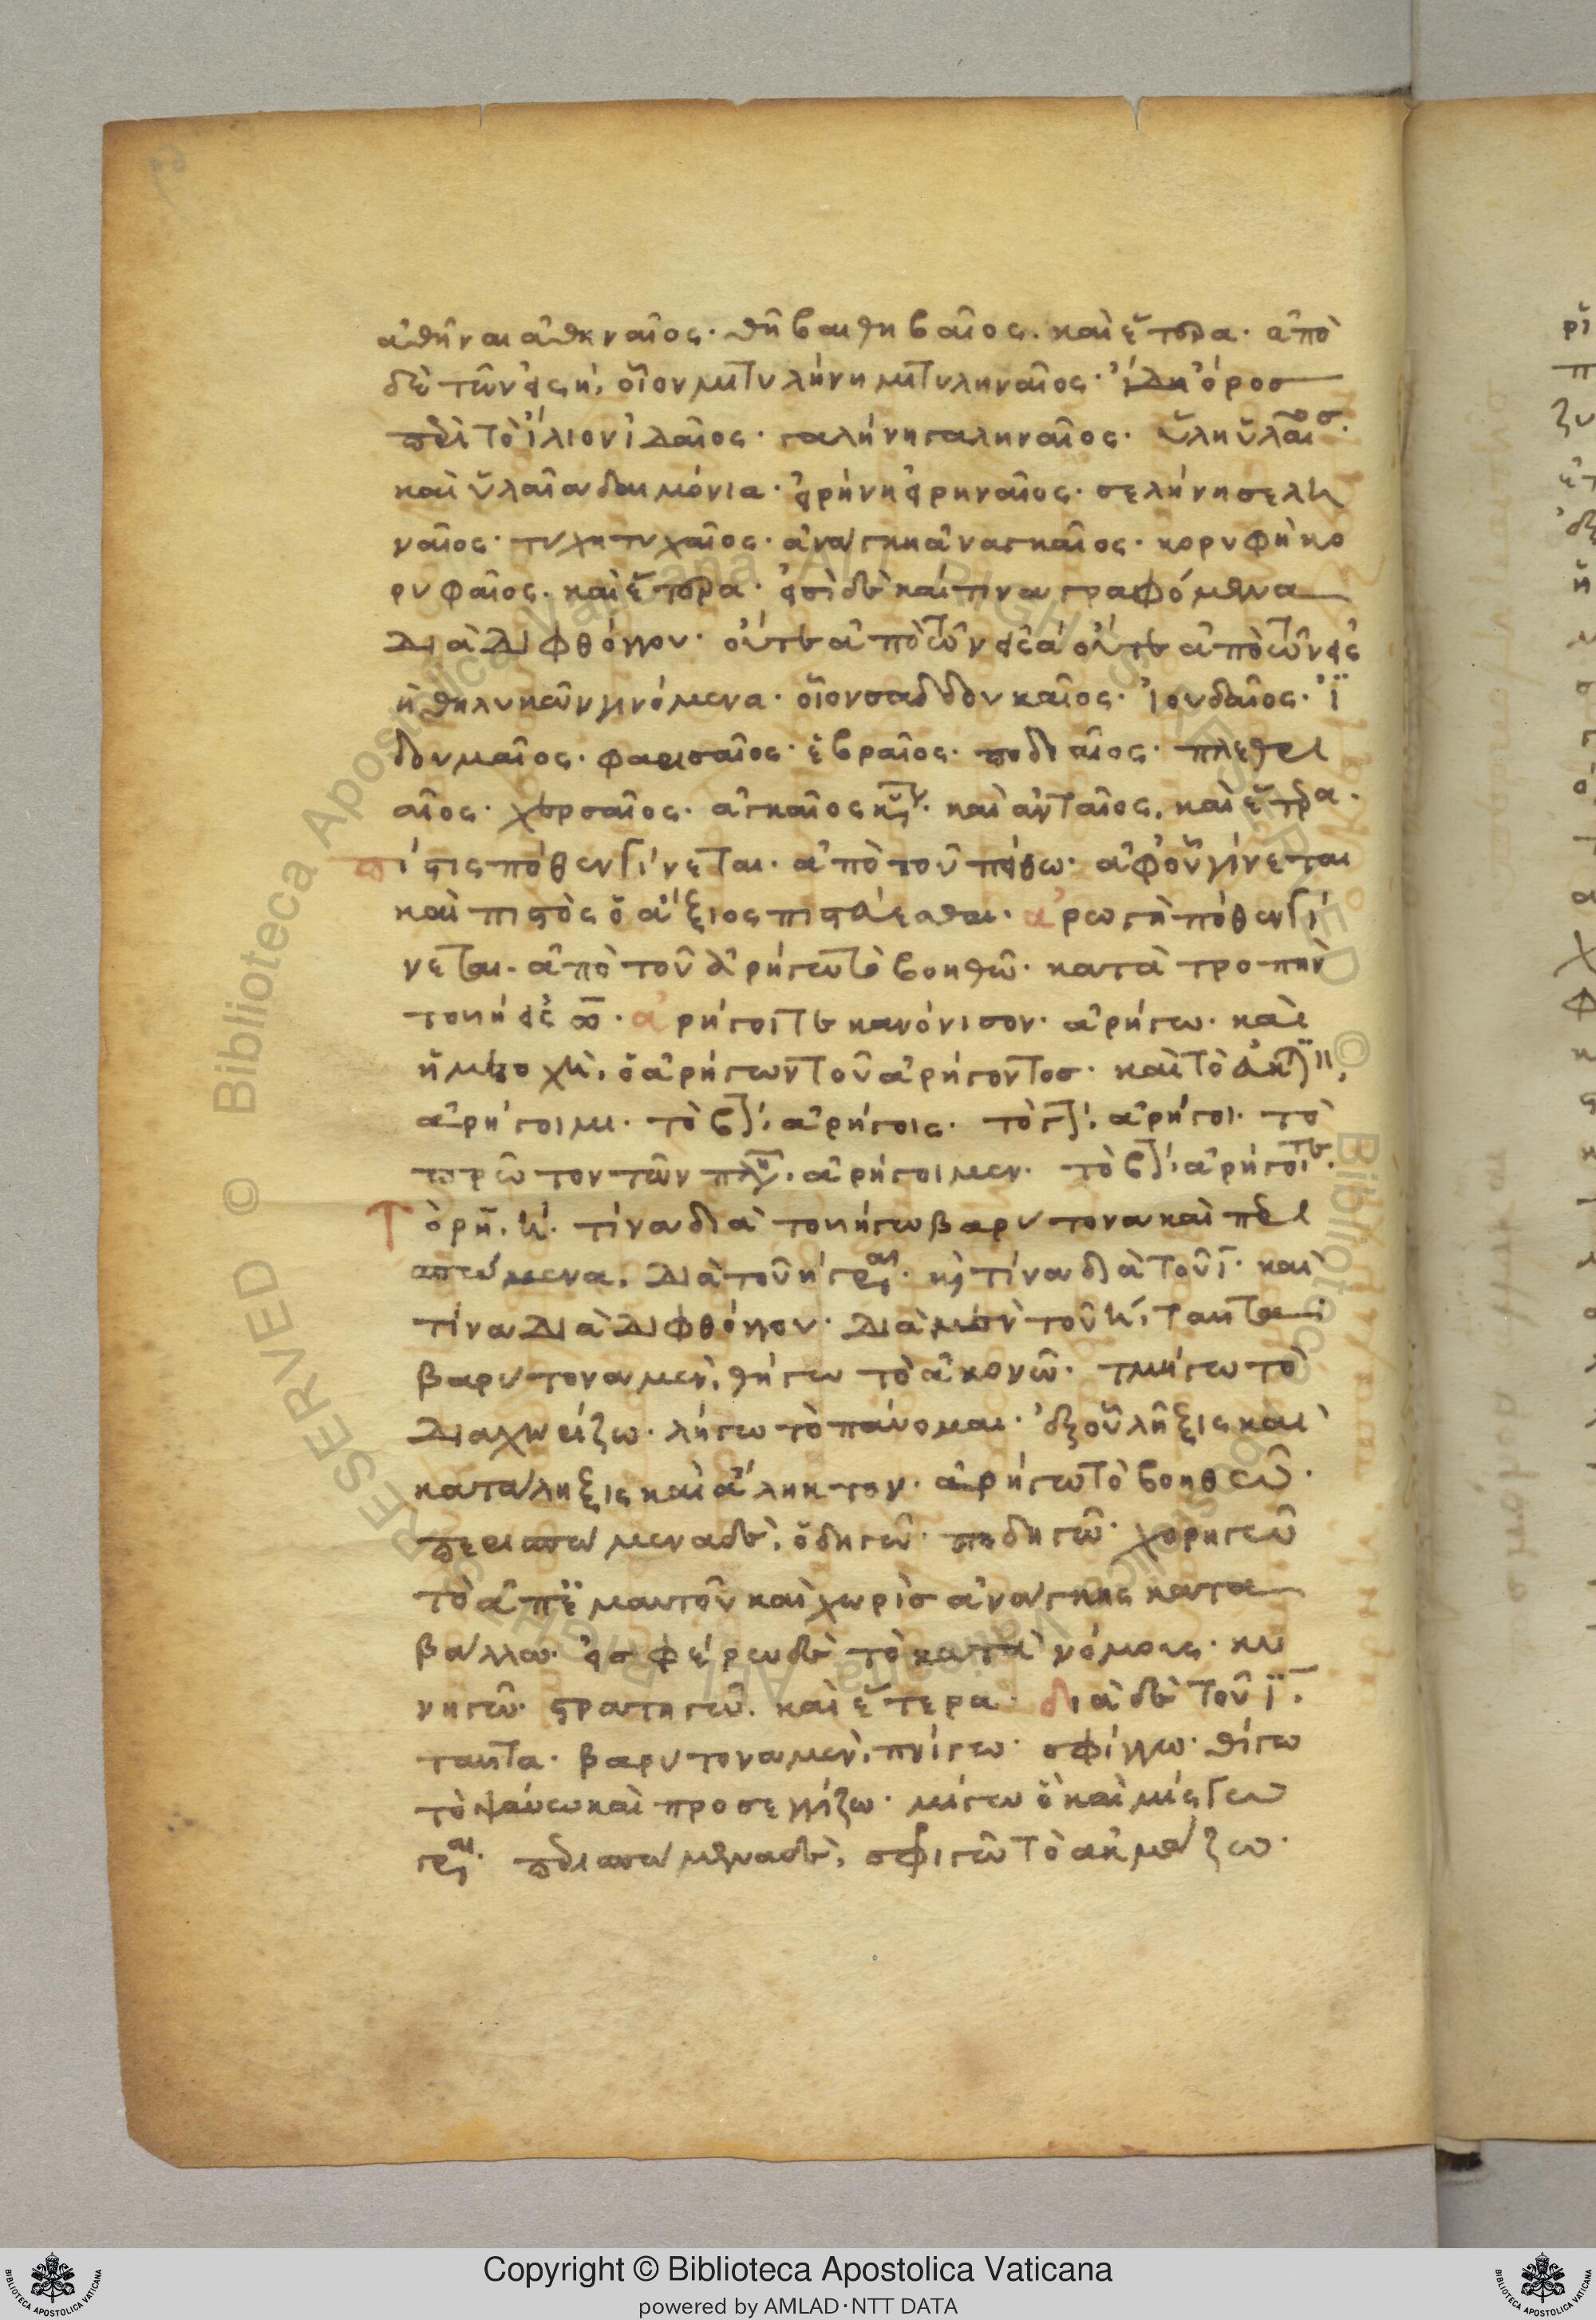 ἀθῆναι ἀθηναῖος· θῆβαι θηβαῖος· καὶ ἕτερα· ἀπὸ
δὲ τῶν εἰς η, οἷον μιτυλήνη μιτυληναῖος· ἴδη ὄρος
περὶ τὸ ἴλιον ἰδαῖος· γαλήνη γαληναῖος· ὕλη ὑλαῖος·
καὶ ὑλαῖα δαιμόνια· εἰρήνη εἰρηναῖος· σελήνη σελη
ναῖος· τύχη τυχαῖος· ἀνάγκη ἀναγκαῖος· κορυφὴ κο
ρυφαῖος· καὶ ἕτερα· εἰσὶ δὲ καί τινα γραφόμενα
διὰ διφθόγγου· οὔτε ἀπὸ τῶν εἰς α οὔτε ἀπὸ τῶν εἰς
η θηλυκῶν γινόμενα· οἷον σαδδουκαῖος· ἰουδαῖος· ἰ
δουμαῖος· φαρισαῖος· ἑβραῖος· πεδιαῖος· πλεθρι
αῖος· χερσαῖος· ἀγκαῖος καὶ ἀνταῖος, καὶ ἕτερα·
πίστις πόθεν γίνεται· ἀπὸ τοῦ πείθω· ἀφ' οὗ γίνεται
καὶ πιστὸς ὁ ἄξιος πιστεύεσθαι· ἀρωγὴ πόθεν γί
νεται· ἀπὸ τοῦ ἀρήγω τὸ βοηθῶ· κατὰ τροπὴν
τοῦ η εἰς ω· ἀρήγοιτε κανόνισον· ἀρήγω· καὶ
ἡ μετοχὴ, ὁ ἀρήγων τοῦ ἀρήγοντος· καὶ τὸ εὐκτικὸν,
ἀρήγοιμι· τὸ β, ἀρήγοις· τὸ γ, ἀρήγοι· τὸ
πρῶτον τῶν πλη, ἀρήγοιμεν· τὸ β, ἀρήγοιτε·
τὸ ρη, η· τίνα διὰ τοῦ ηγω βαρύτονα καὶ περι
σπώμενα, διὰ τοῦ η γράφεται· καὶ τίνα διὰ τοῦ ι· καὶ
τίνα διὰ διφθόγγου· διὰ μὲν τοῦ η, ταῦτα·
βαρύτονα μὲν, θήγω τὸ ἀκονῶ· τμήγω τὸ
διαχωρίζω· λήγω τὸ παύομαι· ἐξ οὗ λῆξις καὶ
κατάληξις καὶ ἄληκτον· ἀρήγω τὸ βοηθῶ·
περισπώμενα δὲ, ὁδηγῶ· πηδηγῶ· χορηγῶ
τὸ ἀπ' ἐμαυτοῦ καὶ χωρὶς ἀνάγκης κατα
βάλλω· εἰσφέρω δὲ τὸ κατὰ νόμους· κυ
νηγῶ· στρατηγῶ· καὶ ἕτερα· διὰ δὲ τοῦ ι,
ταῦτα· βαρύτονα μὲν, πνίγω· σφίγγω· θίγω
τὸ ψαύω καὶ προσεγγίζω· μίγω ὃ καὶ μίσγω
γράφεται· περισπώμενα δὲ, σφριγῶ τὸ ἀκμάζω·